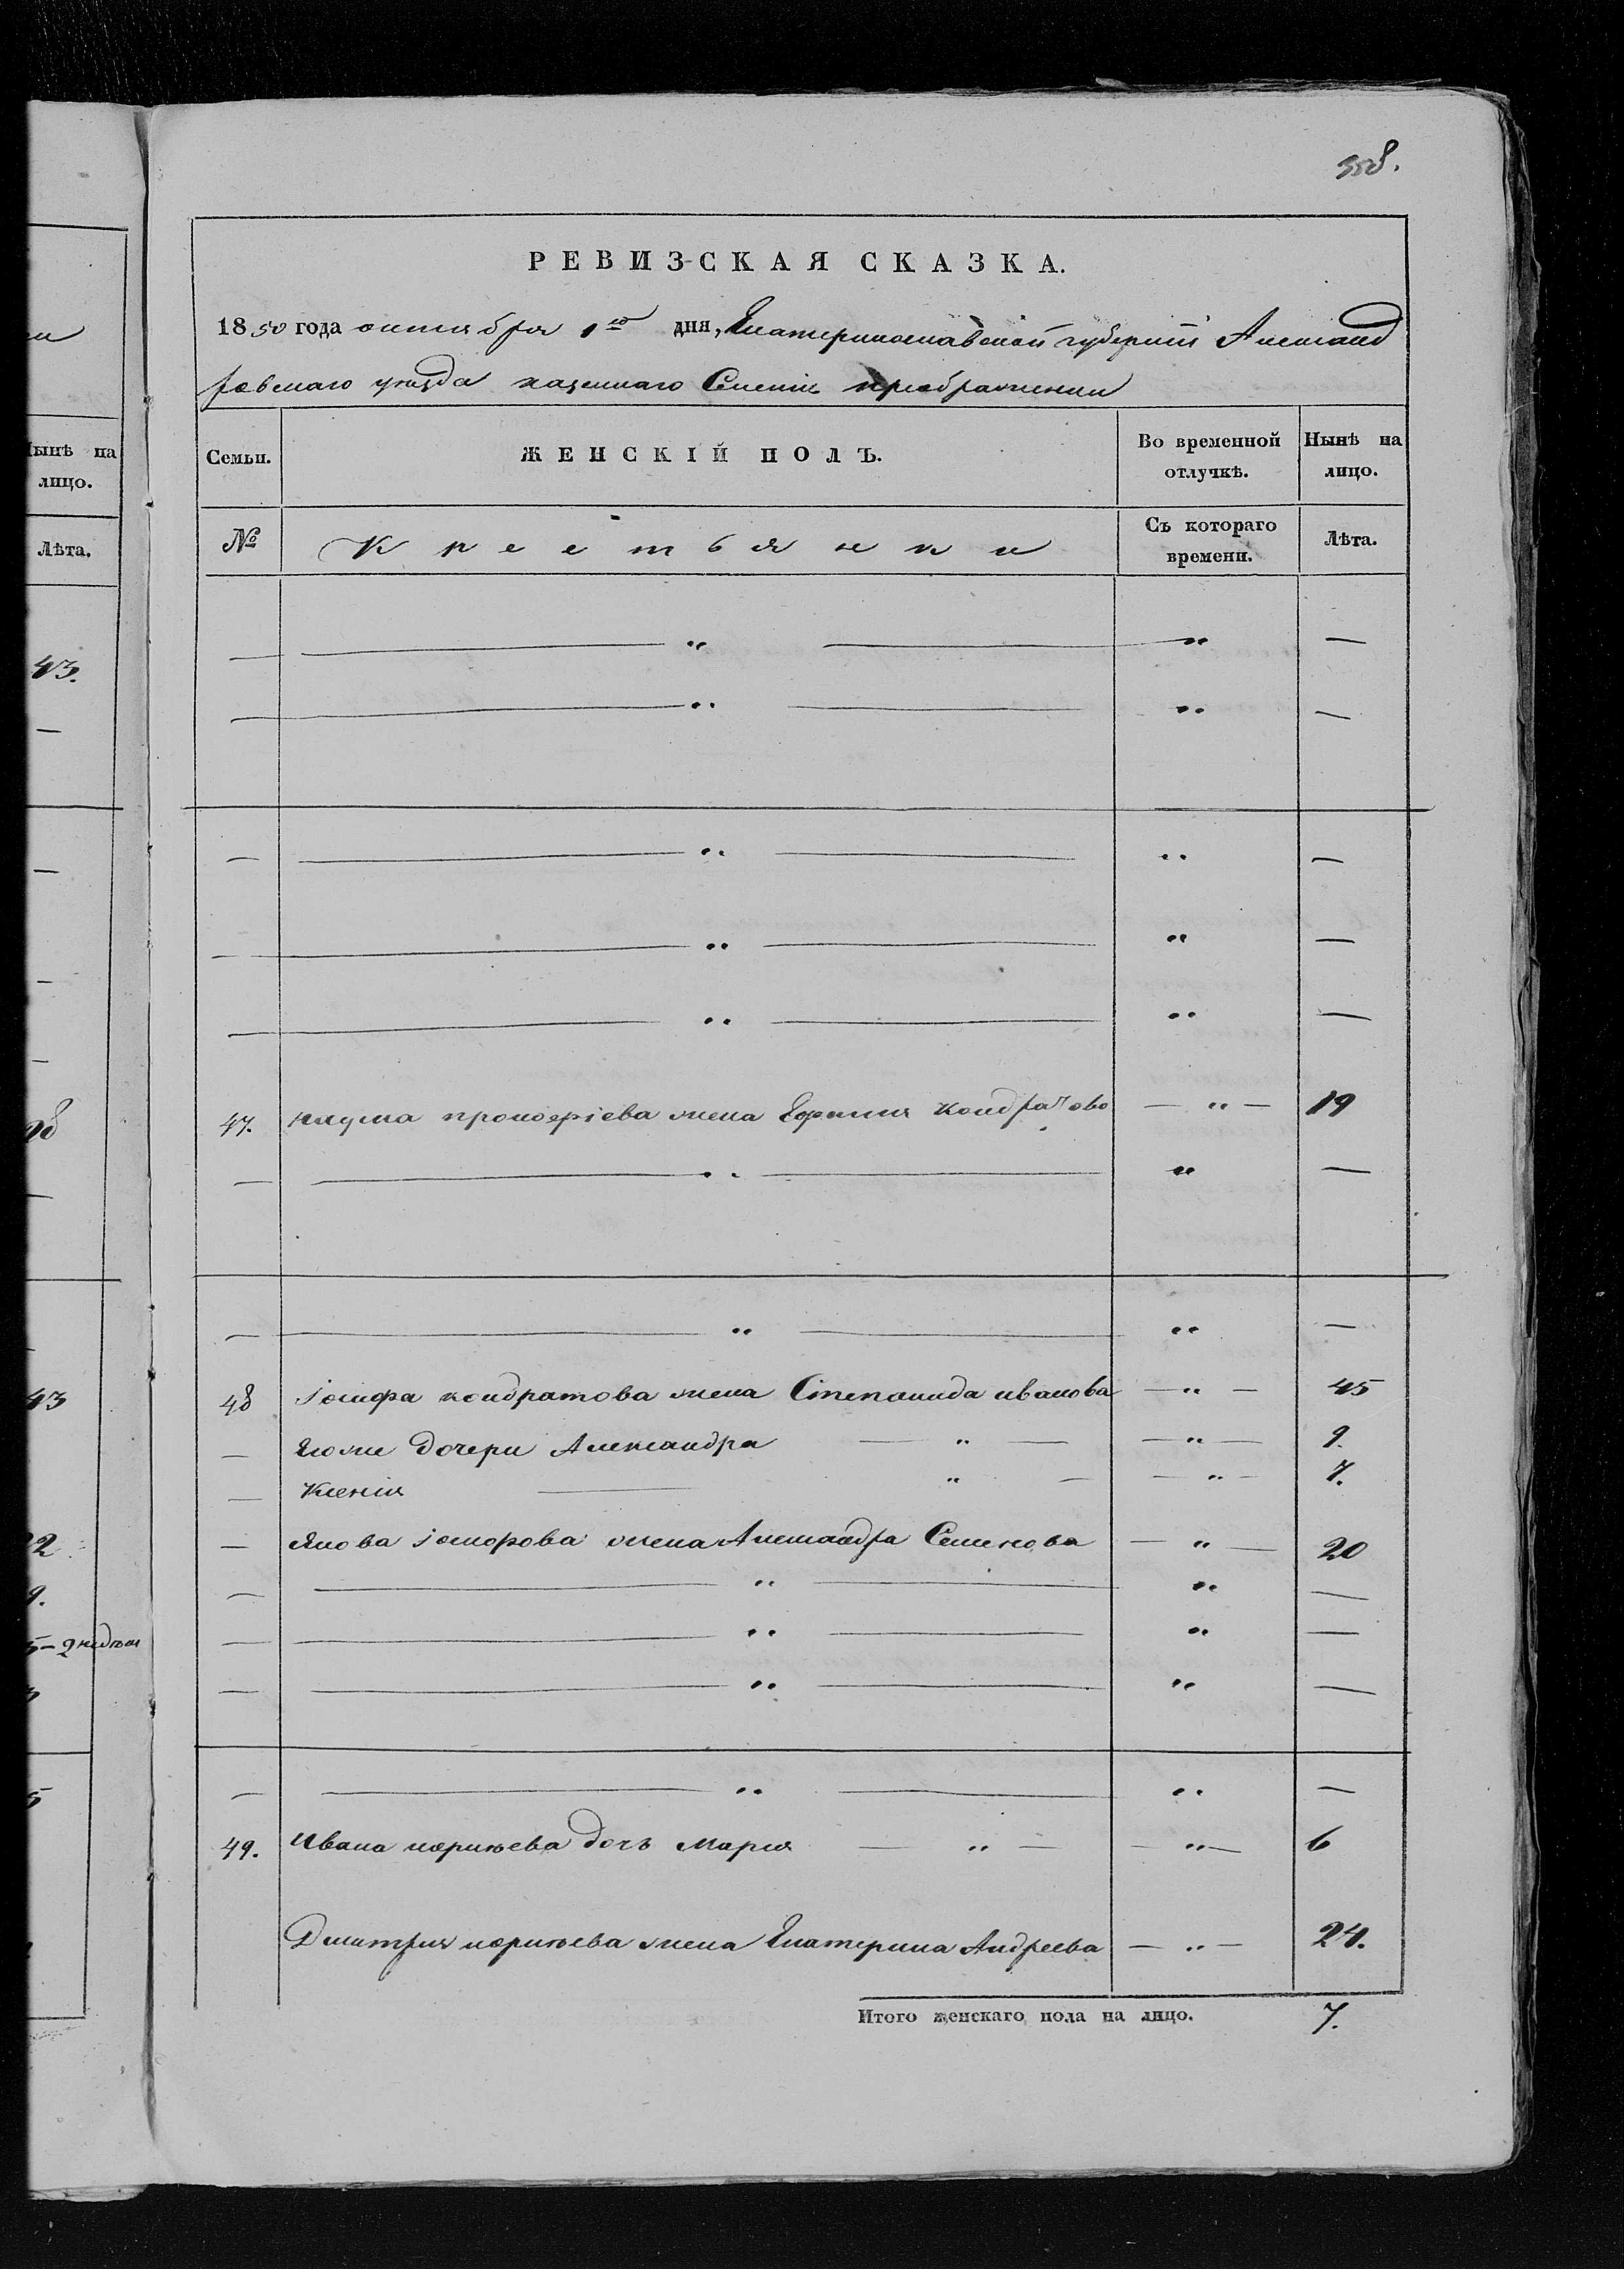 358.
РЕВИЗСКАЯ СКАЗКА.
1850 года октября 1го дня, Екатеринославской губернии Александ
ровскаго уезда казеннаго Селения преображенки
Семьи. ЖЕНСКІЙ ПОЛЪ. Во временной отлучкѣ. Нынѣ на лицо.
№ Крестьянки Съ котораго времени. Лѣта.
— „ — „ —
— „ — „ —
— „ — „ —
— „ — „ —
— „ — „ —
47. наума прокофіева жена Ефимия Кондратово — „ — 19
— „ — „ —
— „ — „ —
48 іосифа кондратова жена Степанида иванова — „ — 45
— Ягоже дочери Александра — „ — — „ — 9.
— Ксенія — „ — — „ — 7.
— Якова іосифова жена Александра Семенова — „ — 20
— „ — „ —
— „ — „ —
— „ — „ —
— „ — „ —
49. Ивана дочъ Мария — „ — — „ — 6
Дмитрия жена Екатерина Андреева — „ — 24.
Итого женскаго пола на лицо. 7.
Нынѣ на
лицо.
Лѣта.
43.
43
22
9.
5